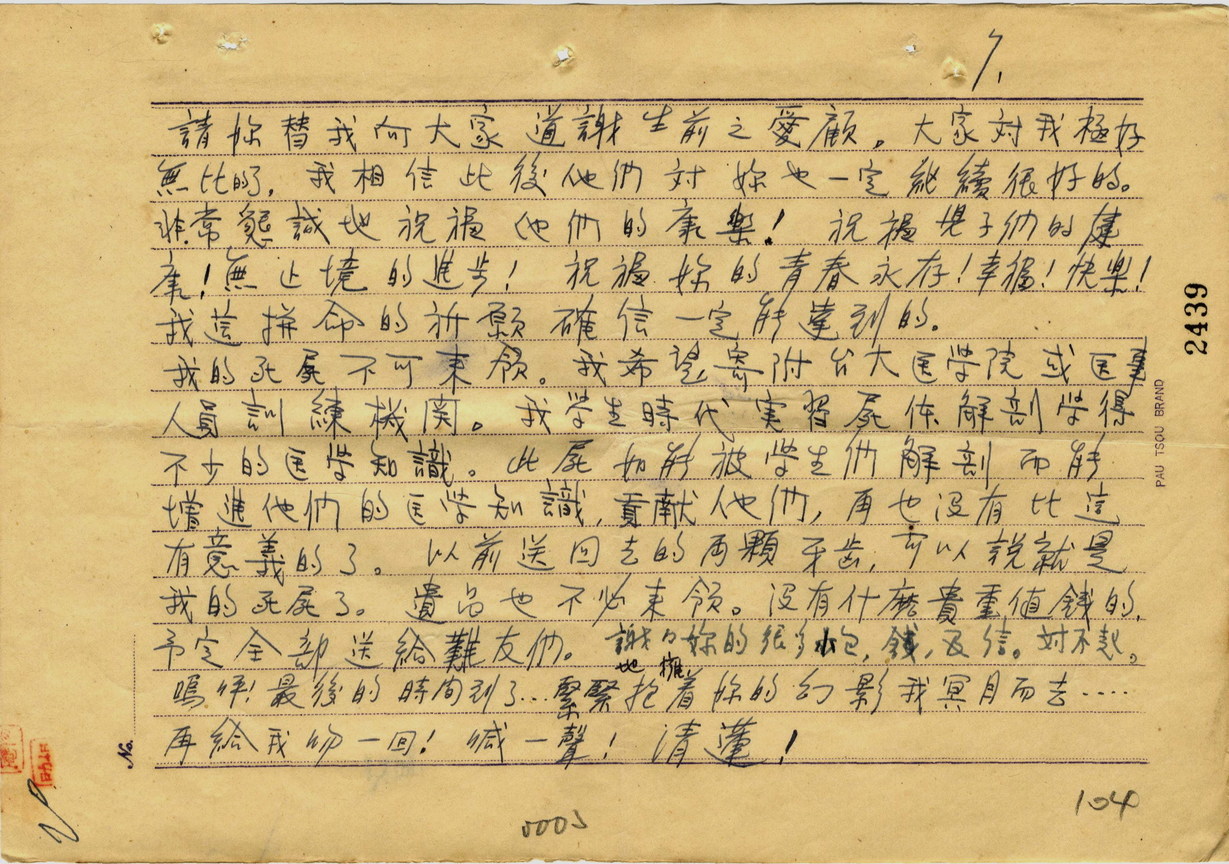 7.
請妳替我向大家道謝生前之愛顧。大家対我極好
無比的。我相信此後他們対妳也一定継續很好的。
非常懇誠地祝福他們的康樂！祝福男子們的健
康！無止境的進步！祝福妳的青春永存！幸福！快樂！
我這拼命的祈願確信一定能達到的。
我的死屍不可來領。我希望寄附台大医学院或医事
人員訓練機関。我学生時代実習屍体解剖学得
不少的医学知識。此屍如能被学生們解剖而能
增進他們的医学知識，貢献他們，再也没有比這
有意義的了。以前送回去的両顆牙齿，可以説就是
我的死屍了。遺品也不必來領。没有什麽貴重值錢的，
予定全部送給難友們。謝々妳的很多小包，錢，及信。対不起。
嗚呼！最後的時间到了…緊緊地擁抱着妳的幻影我冥目而去……
再給我吻一回！喊一聲！清蓮！
No.
2439
PAU TSOU BRAND
0005
104